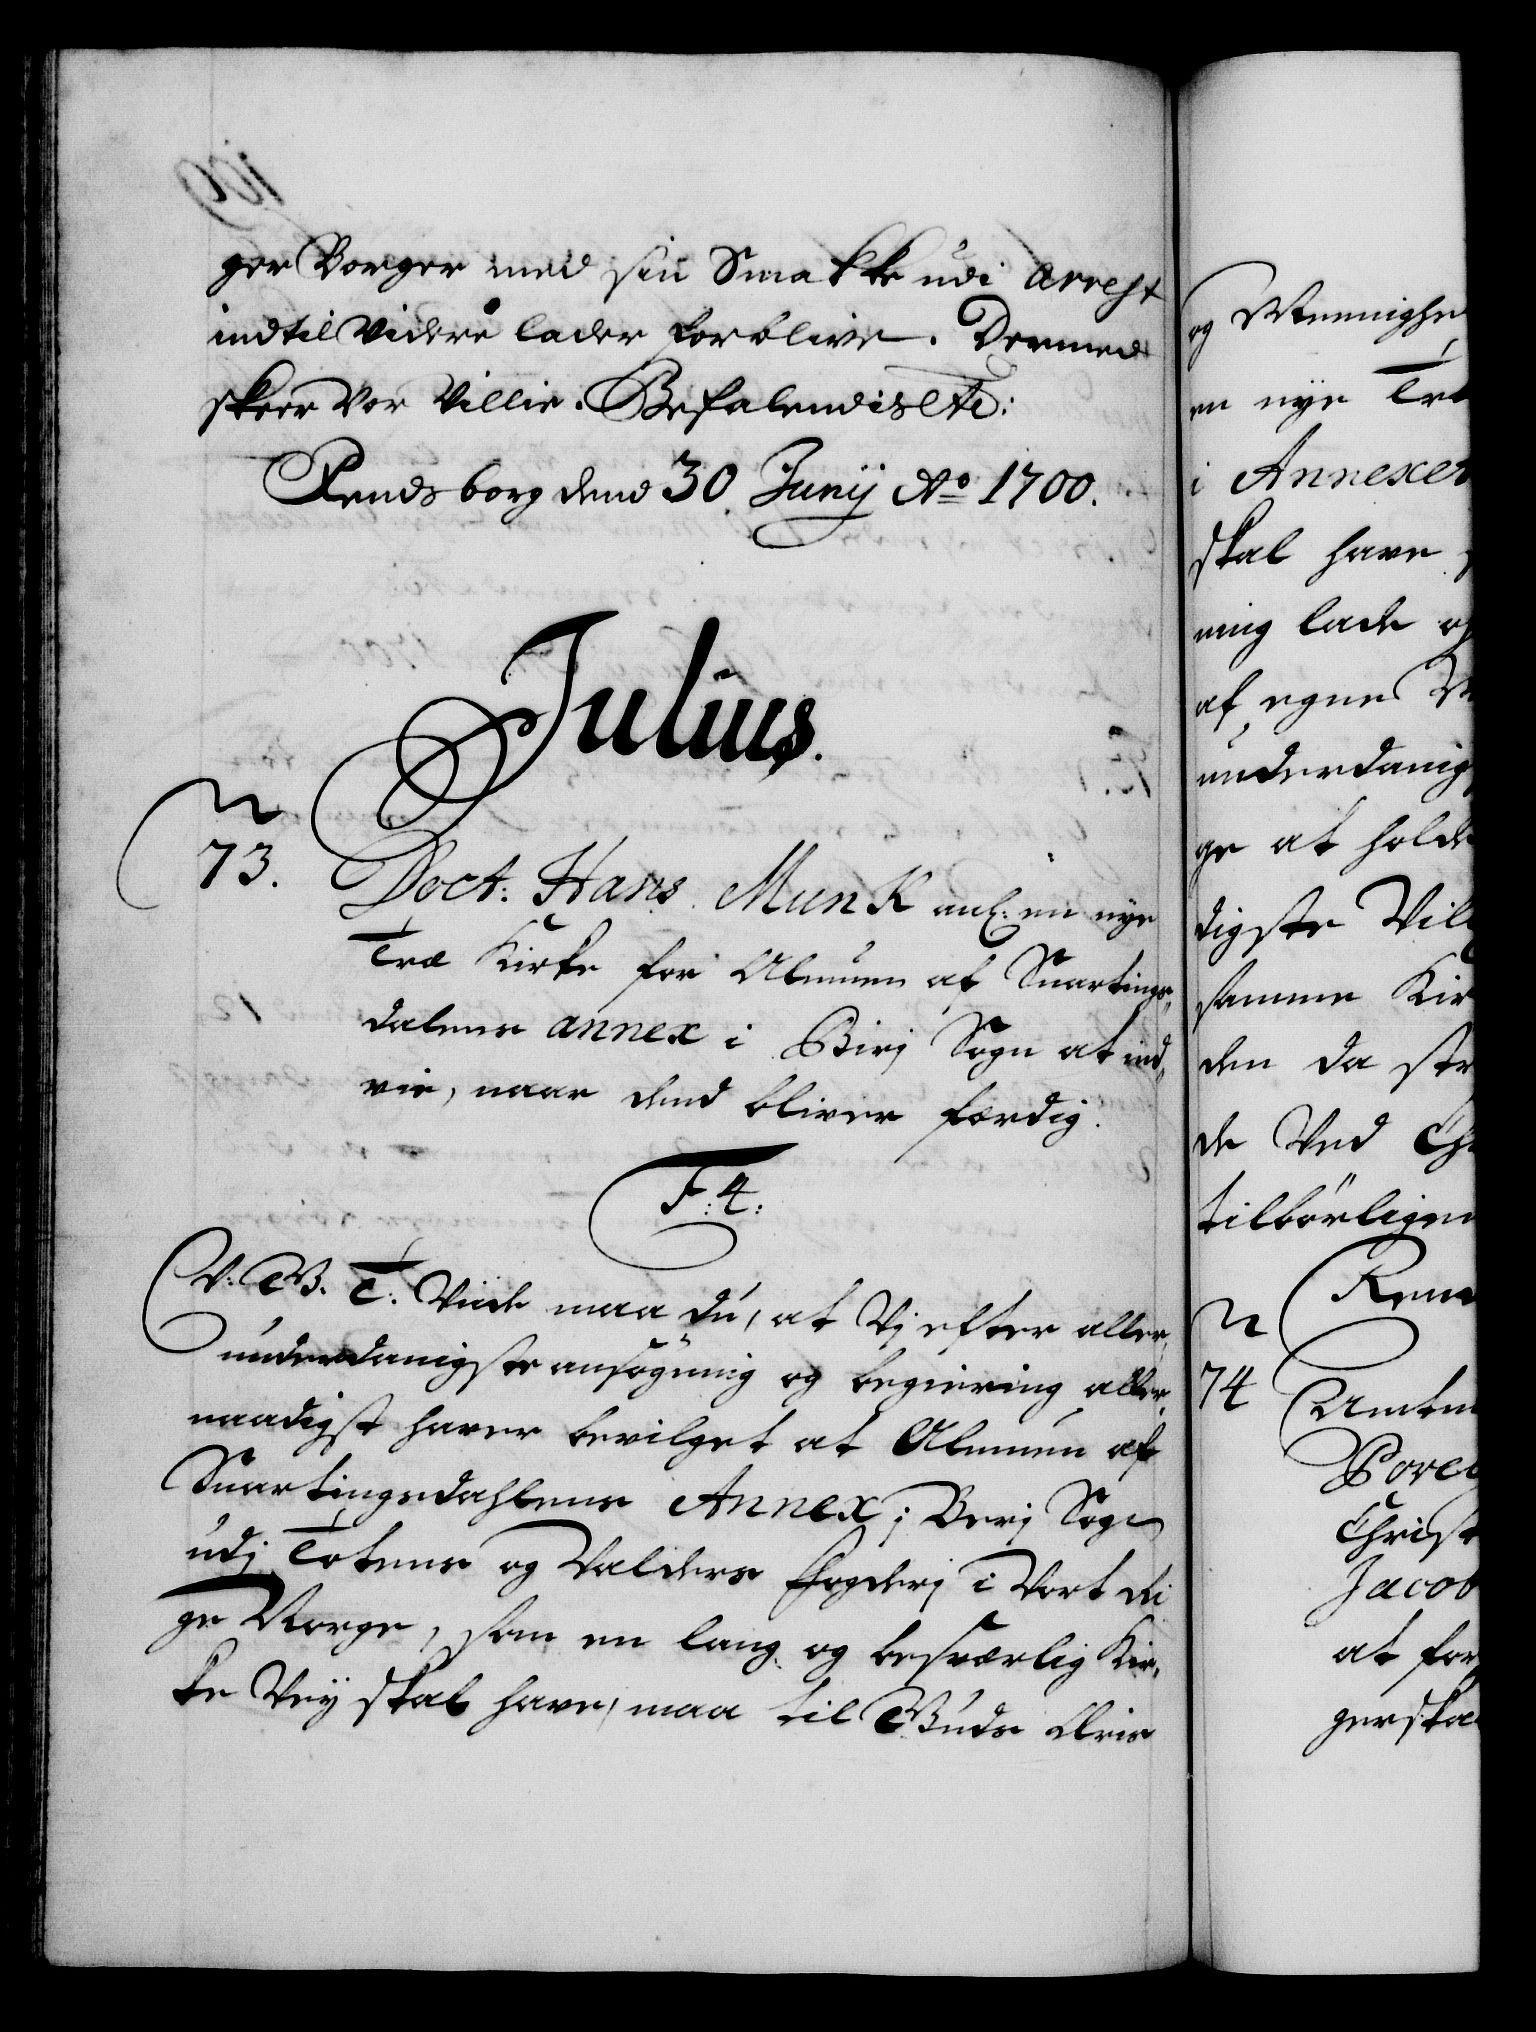 ger Borger med sin Smakke udi arrest
indtil Videre lader forblive. Dermed
skeer Vor Villie. Befalendis etc:
Rendsborg dend 30. Junij Ao 1700.
Julius.
73. Doct: Hans Munk anl: en nye
Træ Kirke for Almuen af Snartings,
dalens annex i Birj Sogn at ind,
vie, naar dend bliver færdig.
F: 4:
V. G. T. Viide maa du, at Vj efter aller,
underdanigste ansøgning og begiering aller,
naadigst haver bevilget at Almuen af
Snartingsdahlens Annex i Berj Sogn
udj Totens og Valders fogderj i Vort Ri
ge Norge, som en lang og besværlig Kir,
ke Vey skal have, maa til Guds Æris
og Menighe
en nye Træ
i Annexet
skal have
ning lade o
af egne M
underdanig
ge at holde
digste Vil
samme Kir
den da str
de Ved
tilbørligen
Ren
74 Amtm
Povel
Christ
Jacob
at for
gerska